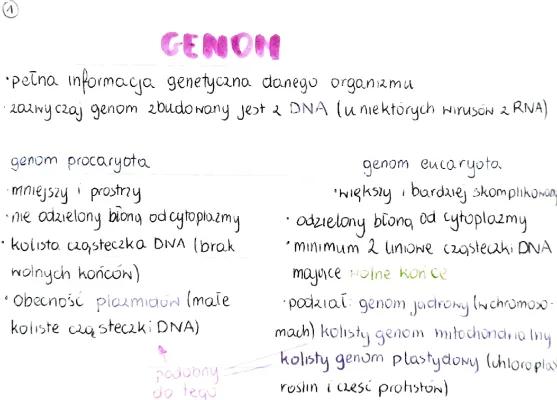 1
GENOM
•pełna informacja genetyczna danego organizmu
•zazwyczaj genom zbudowany jest z DNA (u niektórych wirusów z RNA)
genom procaryota
•mniejszy i prostrzy
•nie odzielony błoną od cytoplazmy
•kolista cząsteczka DNA (brak
wolnych końców)
•Obecność plazmidów (małe
koliste cząsteczki DNA)
podobny
do tego
genom eucaryota
•większy i bardziej skomplikowany
•odzielony błoną od cytoplazmy
•minimum 2 liniowe cząsteczki DNA
mające wolne końce
•podział: genom jądrowy (w chromoso-
mach) kolisty genom mitochondrialny
kolisty genom plastydowy (chloroplas
roślin i część protistów)